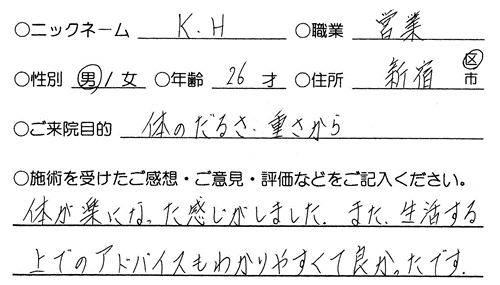 ○ニックネーム K.H ○職業 営業
○性別 男 / 女 ○年齢 26 才 ○住所 新宿 区 市
○ご来院目的 体のだるさ.重さから
○施術を受けたご感想・ご意見・評価などをご記入ください。
体が楽になった感じがしました. また.生活する
上でのアドバイスもわかりやすくて良かったです.